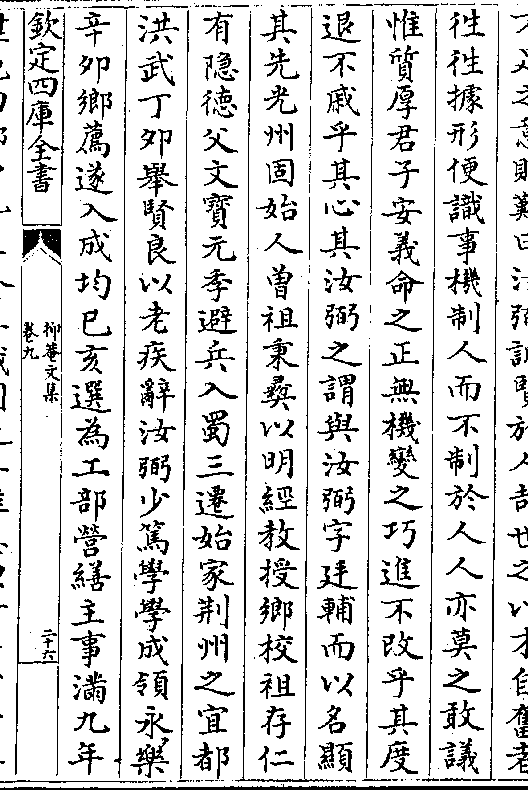 汝弼誠賢於人哉世之以才自奮者
徃徃據形便識事機制人而不制於人人亦莫之敢議
惟質厚君子安義命之正無機變之巧進不改乎其度
退不戚乎其心其汝弼之謂與汝弼字廷輔而以名顯
其先光州固始人曾祖秉彛以明經教授鄉校祖存仁
有隐德父文寳元季避兵入蜀三遷始家荆州之宜都
洪武丁夘舉賢良以老疾辭汝弼少篤學學成領永樂
辛夘鄉薦遂入成均已亥選為工部營繕主事滿九年
欽定四庫全書
抑菴文集
卷九
二十六